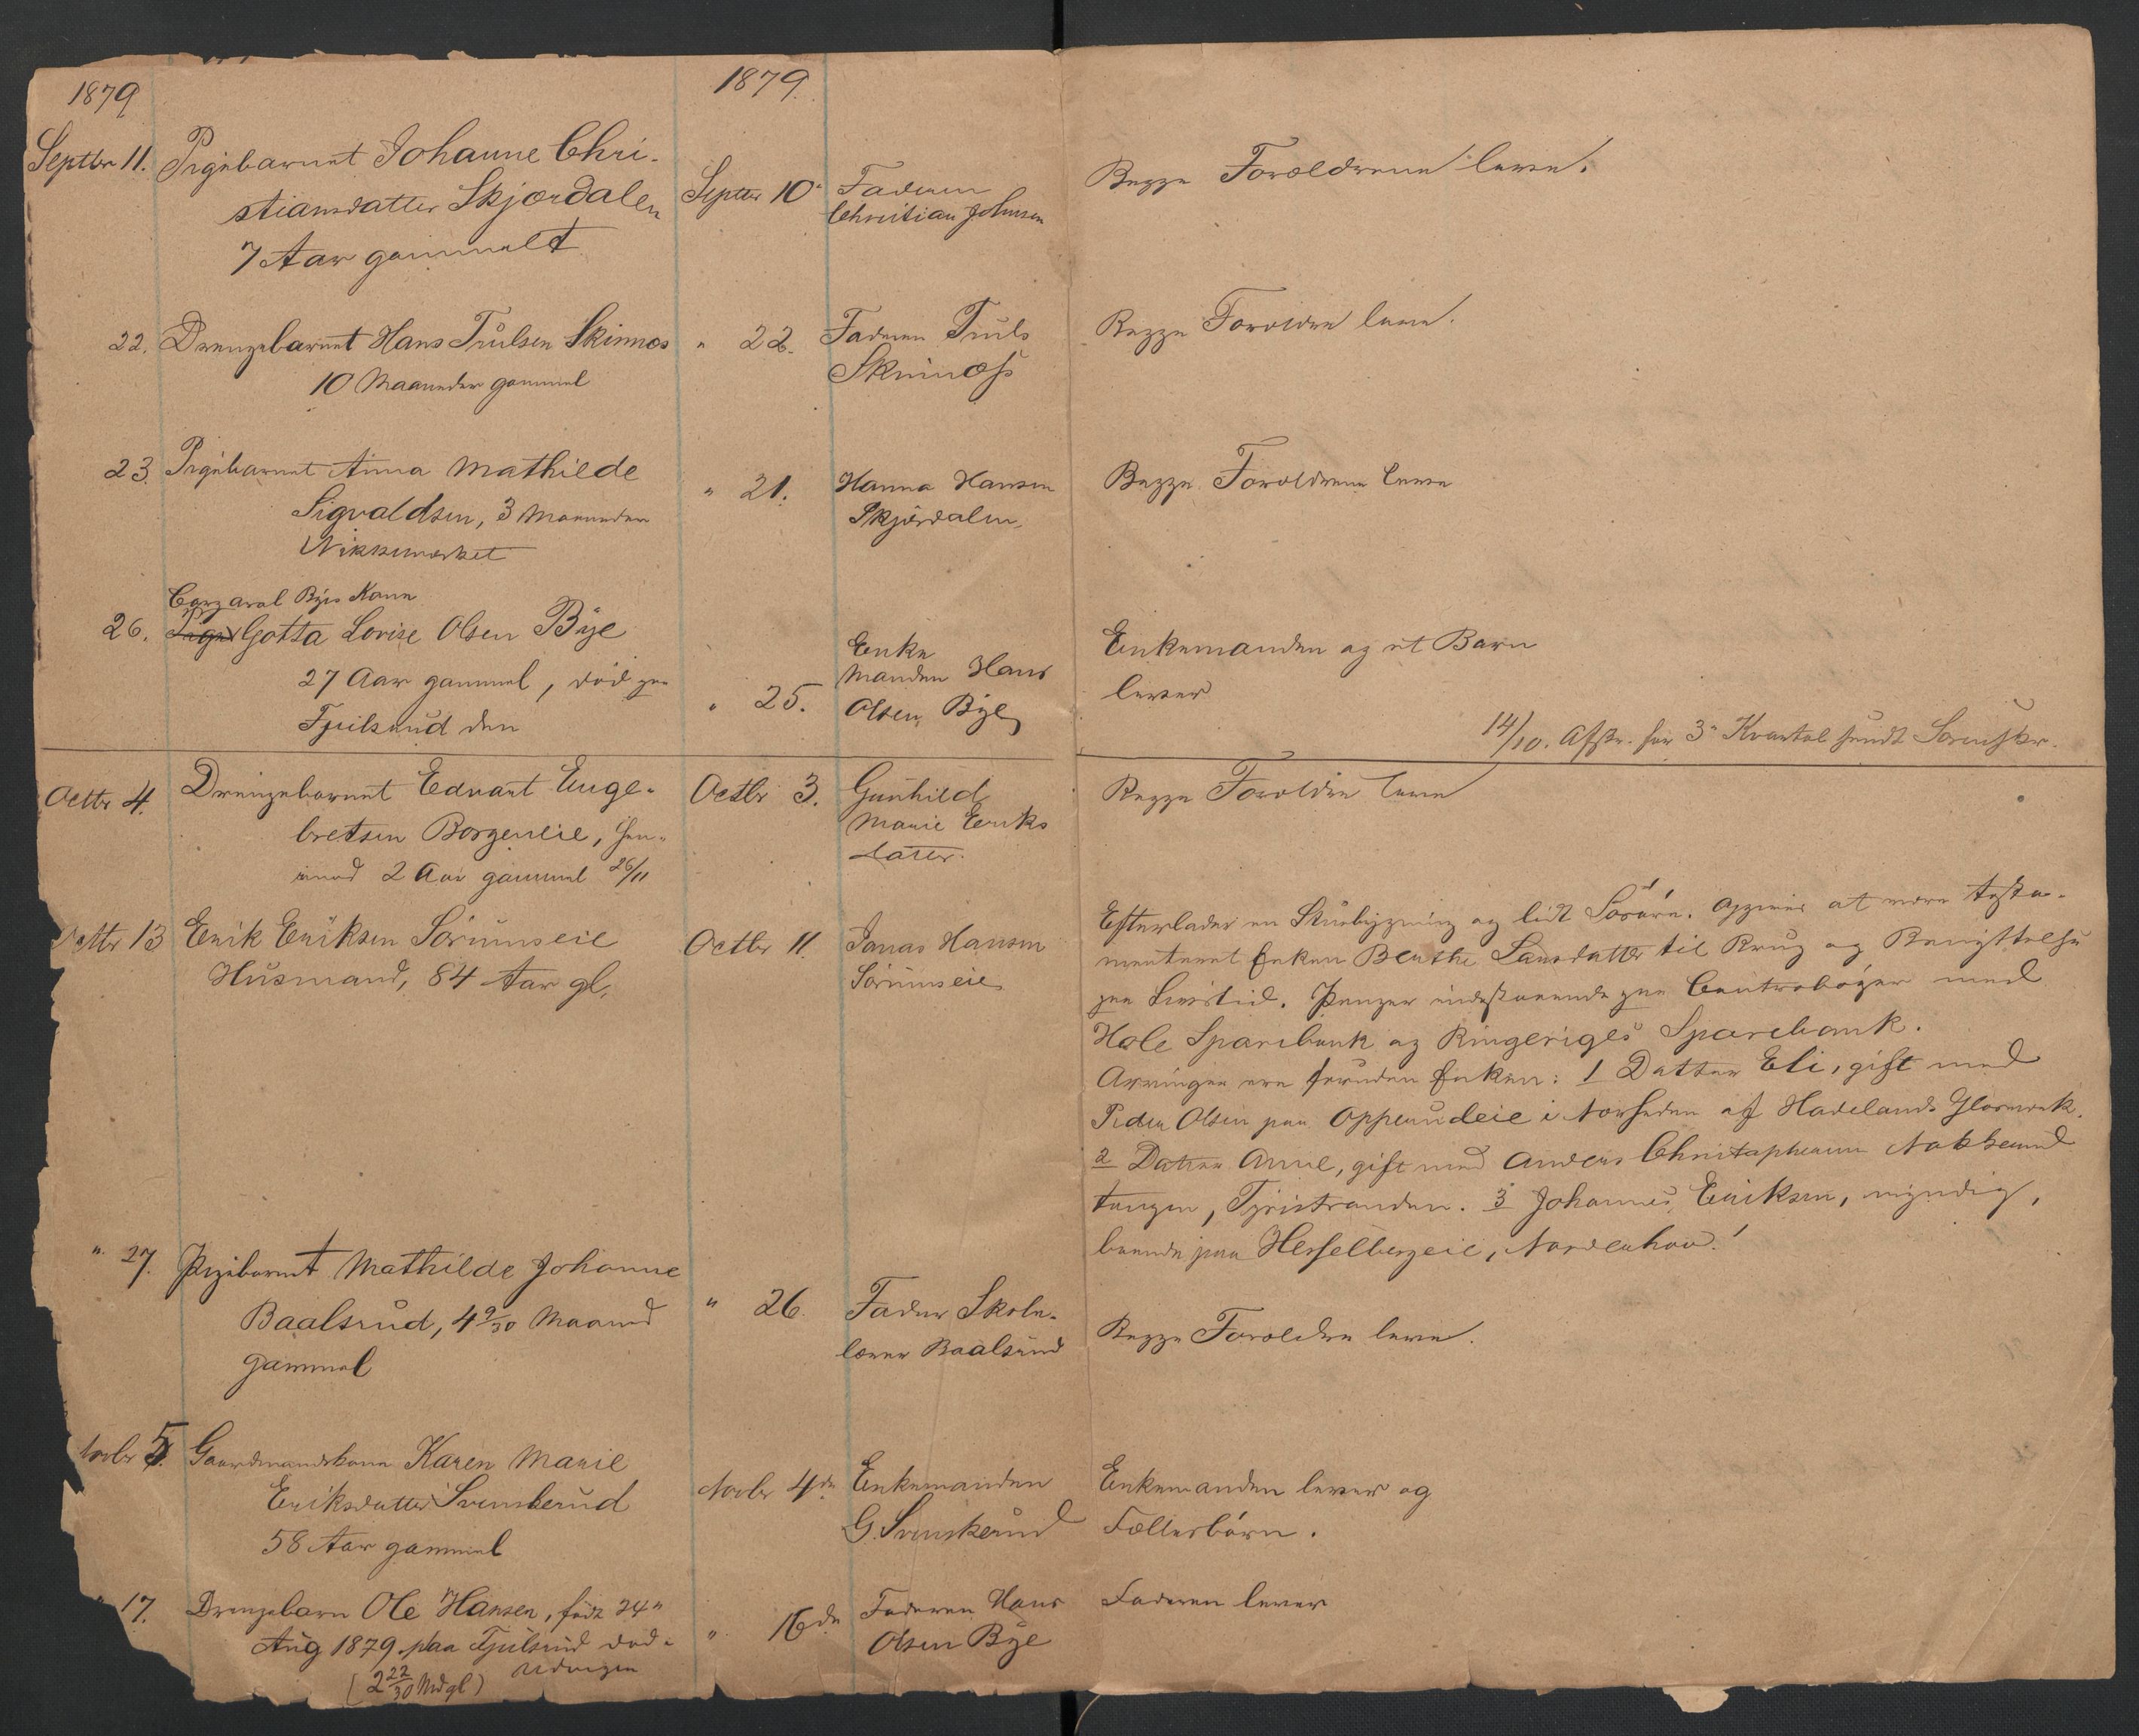 1879
1879.
Septbr 11. Pigebarnet Johanne Chri-
stiansdatter Skjærdalen
7 Aar gammelt
Septbr 10de
Faderen
Christian Johnsen
Begge Forældrene leve.
22. Drengebarnet Hans Trulsen Skinnes
10 Maaneder gammel
" 22.
Faderen Truls
Skinnes
Begge Forældre leve.
23. Pigebarnet Anna Mathilde
Sigvaldsen, 3 Maaneder
" 21.
Hanna Hansen
Skjærdalen,
Begge Forældrene leve
Corporal Byes Kone
26. Gotta Lovise Olsen Bye
27 Aar gammel, død paa
Tjulsrud den
" 25.
Enke
manden Hans
Olsen Bye
Enkemanden og et Barn
lever
14/10. Afskr. for 3de Kvartal sendt Sorenskr.
Octbr 4. Drengebarnet Edvart Enge-
bretsen Borgeneie,
2 Aar gammel 26/11
Octbr 3.
Gunhild
Marie Eriks
datter.
Begge Forældre leve
Octbr 13 Erik Eriksen Sörumseie
Husmand, 84 Aar gl.
Octbr 11.
Jonas Hansen
Sörumseie
Efterlader en Stuebygning og lidt Løsøre. Opgives at være testa-
menteret Enken Berthe Larsdatter til Brug og Benyttelse
paa Livstid. Penger indestaaende paa Contrabøger med
Hole Sparebank og Ringeriges Sparebank.
Arvinger ere foruden Enken: 1 Datter Eli, gift med
Peder Olsen paa Opperudeie i Nærheden af Hadelands Glasværk.
2 Datter Anne, gift med Anders Christophersen Nakkerud
tangen, Tyristranden. 3 Johannes Eriksen, myndig,
boende paa Hesselbergeie, Norderhov.
" 27. Pigebarnet Mathilde Johanne
Baalsrud, 4 9/30 Maaned
gammel
" 26.
Fader Skole-
lærer Baalsrud
Begge Forældre leve.
Novbr 5. Gaardmandskone Karen Marie
Eriksdatter Svenskerud
58 Aar gammel
Novbr 4de
Enkemanden
G. Svenskerud
Enkemanden lever og
Fællesbørn.
" 17. Drengebarn Ole Hansen, født 24de
Aug 1879 paa Tjulsrud
(2 22/30 Md gl)
" 16de
Faderen Hans
Olsen Bye
Faderen lever